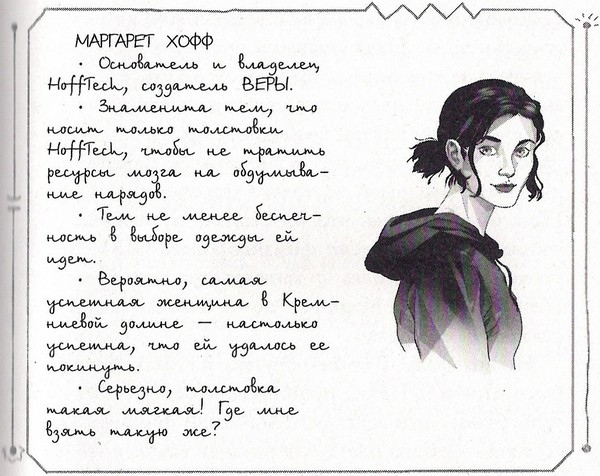 МАРГАРЕТ ХОФФ
• Основатель и владелец
HoffTech, создатель ВЕРЫ.
• Знаменита тем, что
носит только толстовки
HoffTech, чтобы не тратить
ресурсы мозга на обдумыва-
ние нарядов.
• Тем не менее беспеч-
ность в выборе одежды ей
идет.
• Вероятно, самая
успешная женщина в Крем-
ниевой долине — настолько
успешна, что ей удалось ее
покинуть.
• Серьезно, толстовка
такая мягкая! Где мне
взять такую же?